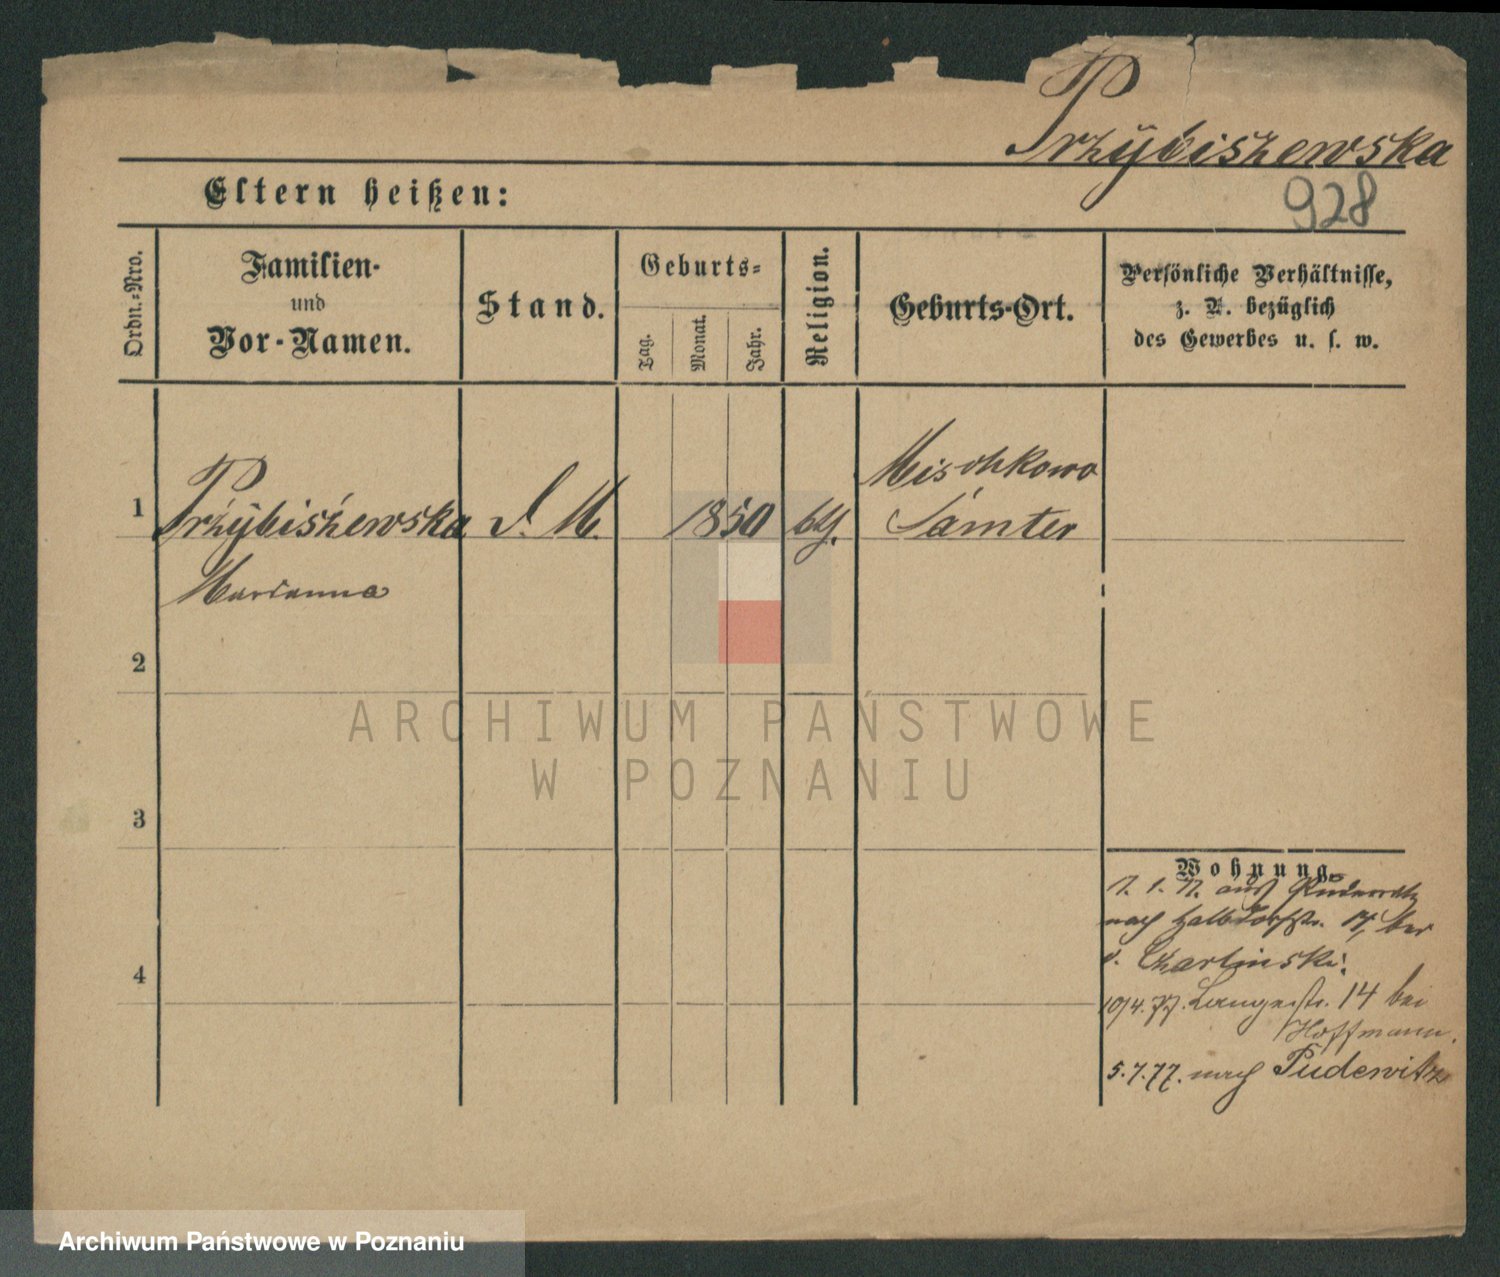 Przybiszewska
Eltern heißen:
928
Ordn.-Nro.
Familien-
und
Vor-Namen.
Stand.
Geburts-
Tag.
Monat.
Jahr.
Religion.
Geburts-Ort.
Persönliche Verhältnisse,
z. B. bezüglich
des Gewerbes u. s. w.
Mischkowo
1 Przybiszewska D. M. 1850 Samter
Marianna
2
ARCHIWUM PAŃSTWOWE
W POZNANIU
3
Wohnung.
aus
nach Halbdorfstr. 17, bei
v. Czarlinski.
4
10/4.77. Langestr. 14 bei
Hoffmann.
5.7.77. nach Pudewitz
Archiwum Państwowe w Poznaniu